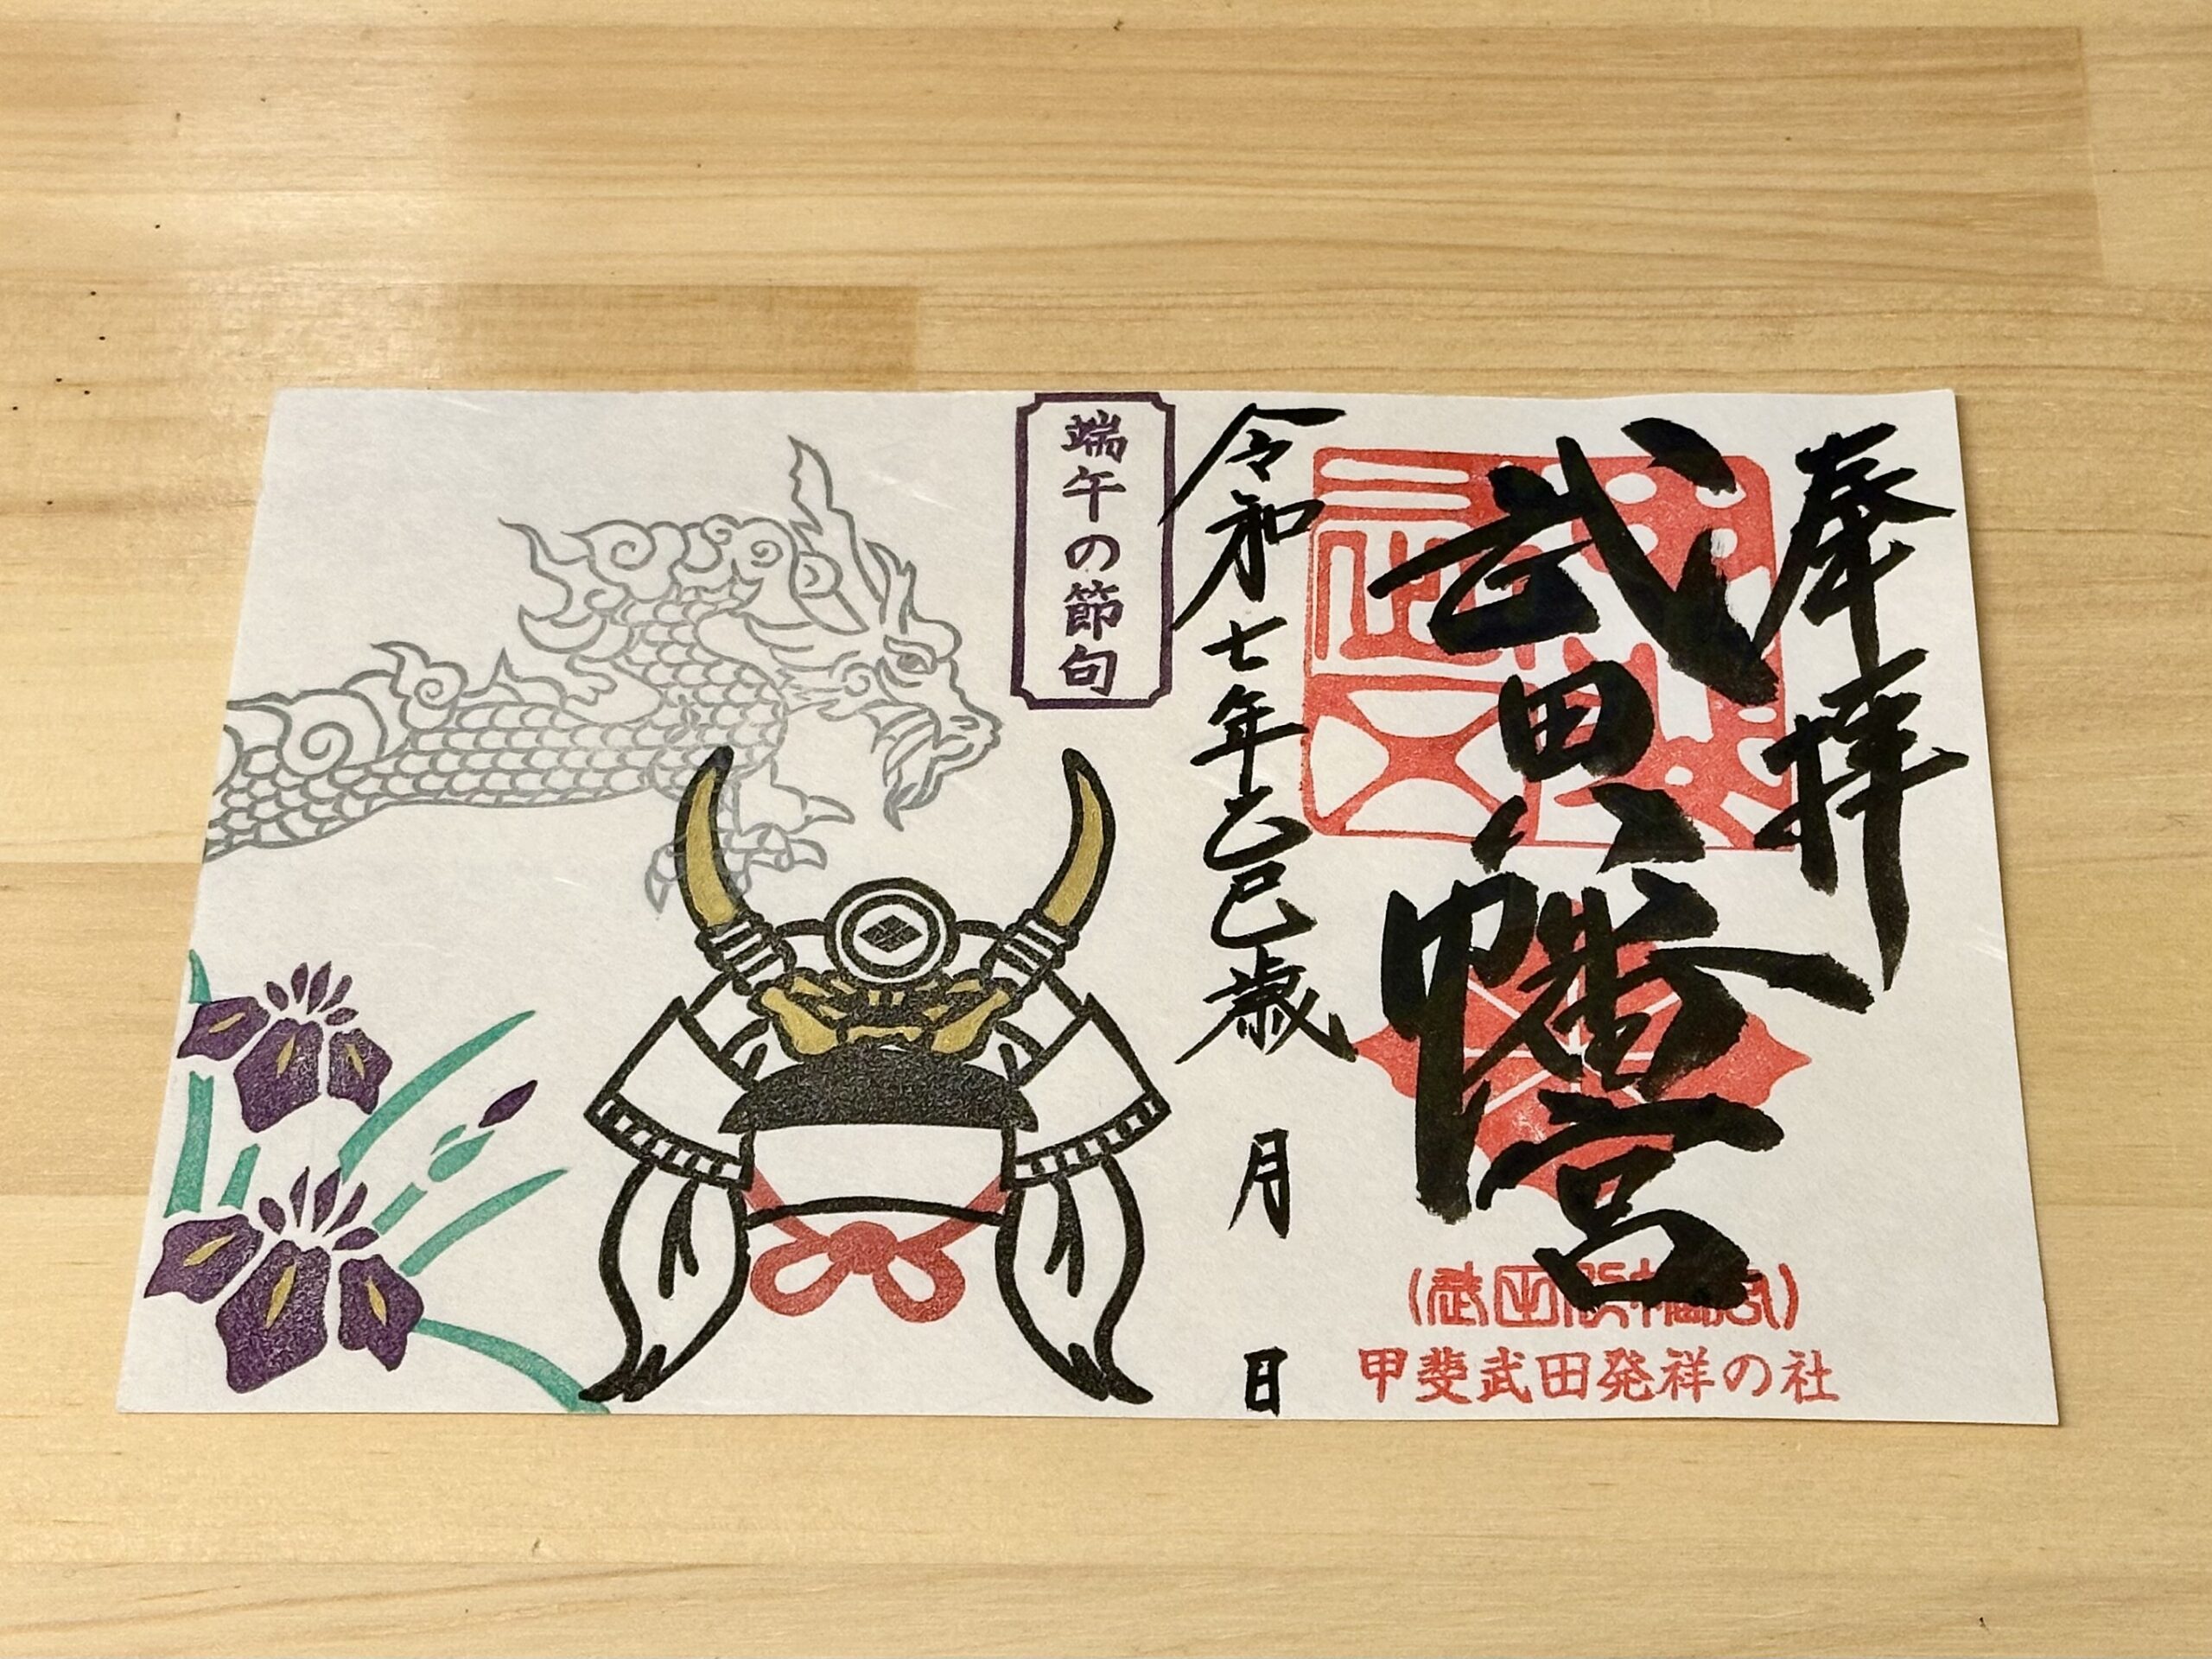 奉拝
武田八幡宮
甲斐武田発祥の社
令和七年乙巳歳
月
日
端午の節句